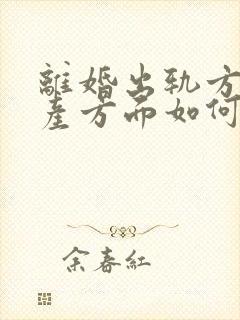 離婚出軌方
產方面如何
余春紅